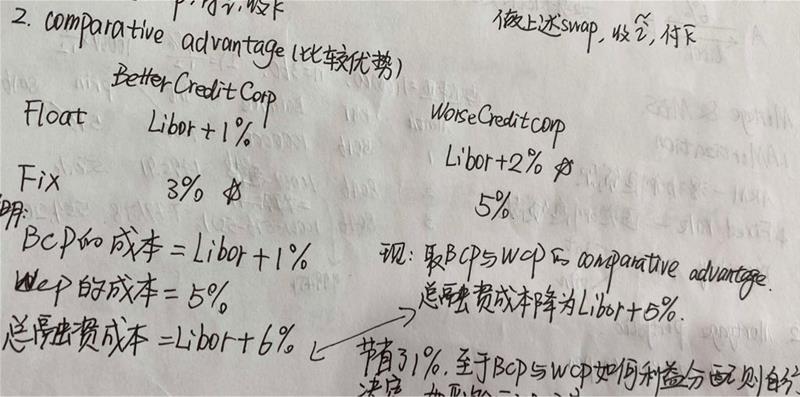 付i, 收k
做上述swap, 收ĩ, 付k
2. comparative advantage (比较优势)
Better Credit Corp
Worse Credit corp
Float Libor + 1% Libor + 2%
Fix 3% 5%
明:
BCP的成本 = Libor + 1%
WCP的成本 = 5%
总融资成本 = Libor + 6%
现: 取BCP与WCP的 comparative advantage.
总融资成本降为Libor + 5%.
节省了1%, 至于BCP与WCP如何利益分配则自行
决定